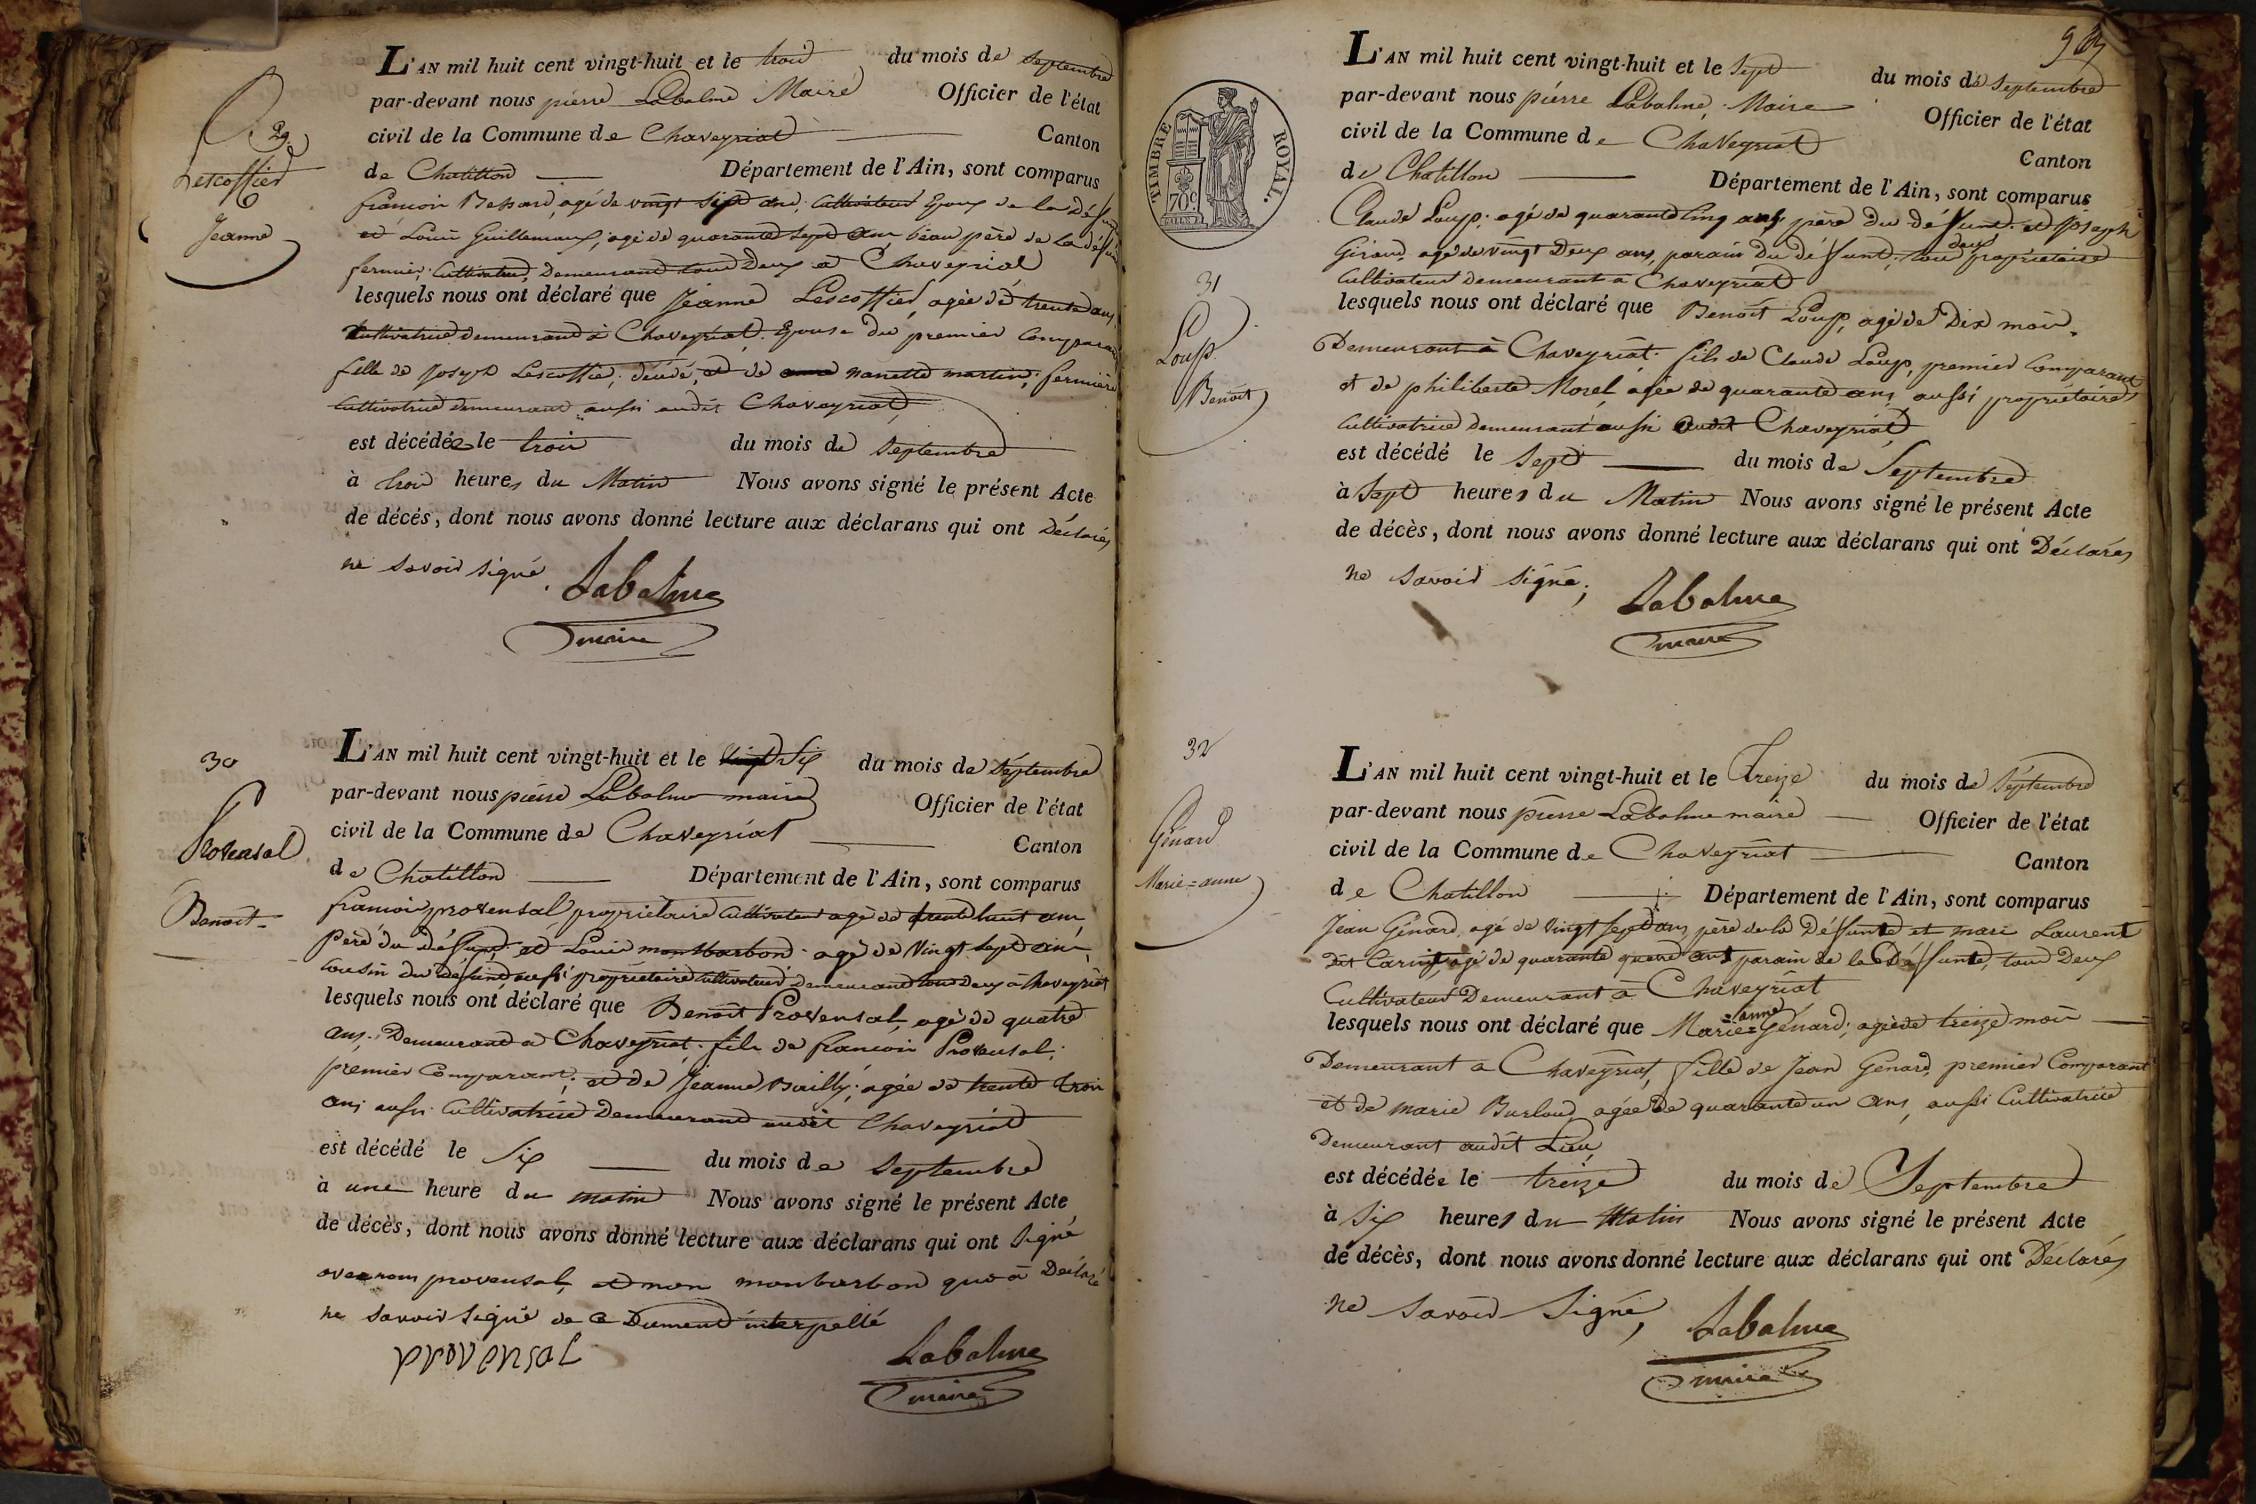 29
Lescoffier
Jeanne
L'AN mil huit cent vingt-huit et le trois du mois de Septembre
par-devant nous pierre Labalme Maire Officier de l'état
civil de la Commune de Chaveyriat Canton
de Chatillon Département de l'Ain, sont comparus
francois agé de vingt sept ans, Cultivateur Epoux de la Défunte
et Louis Guillemaux, agé de quarante sept ans beau père de la défunte
fermier Cultivateur, Demeurand tous Deux a Chaveyriat
lesquels nous ont déclaré que Jeanne Lescoffier, agée de trente ans
Cultivatrice demeurand à Chaveyriat. Epouse du premier Comparant
fille de Joseph Lescoffier, décédé, et de nanette martin, fermière
Cultivatrice demeurant aussi audit Chaveyriat
est décédée le trois du mois de Septembre
à trois heures du Matin Nous avons signé le présent Acte
de décés, dont nous avons donné lecture aux déclarans qui ont Déclarés
ne savoir signé. Labalme
maire
30
Provensal
Benoit
L'AN mil huit cent vingt-huit et le Six du mois de Séptembre
par-devant nous pierre Labalme maire Officier de l'état
civil de la Commune de Chaveyriat Canton
de Chatillon Département de l'Ain, sont comparus
francois provensal propriétaire Cultivateur agé de trente huit ans,
Père du Défunt, et Louis monbarbond agé de Vingt Sept ans,
Cousin du défunt, aussi propriétaire Cultivateur Demeurand tous Deux à Chaveyriat
lesquels nous ont déclaré que Benoit Provensal, agé de quatre
ans. Demeurand a Chaveyriat. fils de francois Provensal,
premier Comparant, et de Jeanne Bailly, agée de trente trois
ans aussi Cultivatrice Demeurand audit Chaveyriat
est décédé le Six du mois de Septembre
à une heure du matin Nous avons signé le présent Acte
de décès, dont nous avons donné lecture aux déclarans qui ont Signé
avec nous provensal, et non monbarbon qui à Déclaré
ne savoir signé de ce Dument interpellé
provensal Labalme
maire
TIMBRE ROYAL.
70 c.
31
Loup
Benoit
L'AN mil huit cent vingt-huit et le Sept du mois de Septembre
par-devant nous pierre Labalme, Maire Officier de l'état
civil de la Commune de Chaveyriat Canton
de Chatillon Département de l'Ain, sont comparus
Claude Loup, agé de quarante Cinq ans, père du défunt, et Joseph
agé de vingt Deux ans, parain Du défunt, tous deux propriétaire
Cultivateur demeurant a Chaveyriat
lesquels nous ont déclaré que Benoit Loup, agé de Dix mois,
Demeurant à Chaveyriat. fils de Claude Loup, premier Comparant
et de philiberte Morel agée de quarante ans, aussi propriétaire
Cultivatrice demeurant aussi audit Chaveyriat
est décédé le Sept du mois de Septembre
à Sept heures du Matin Nous avons signé le présent Acte
de décès, dont nous avons donné lecture aux déclarans qui ont Déclarés
ne savoir signé, Labalme
maire
32
Génard
Marie=anne
L'AN mil huit cent vingt-huit et le Treize du mois de Séptembre
par-devant nous pierre Labalme maire Officier de l'état
civil de la Commune de Chaveyriat Canton
de Chatillon Département de l'Ain, sont comparus
Jean Génard, agé de vingt sept ans père de la Défunte et marc Laurent
dit agé de quarante quatre ans parain de la Défunte, tous Deux
Cultivateur Demeurant à Chaveyriat
lesquels nous ont déclaré que Marie=anne Génard, agée de treize mois
Demeurant a Chaveyriat, fille de Jean Genard, premier Comparant
et de marie Burloud, agée de quarante un ans, aussi Cultivatrice
Demeurant audit Lieu
est décédée le treize du mois de Septembre
à Six heures du Matin Nous avons signé le présent Acte
de décès, dont nous avons donné lecture aux déclarans qui ont Déclarés
ne savoir Signé, Labalme
maire